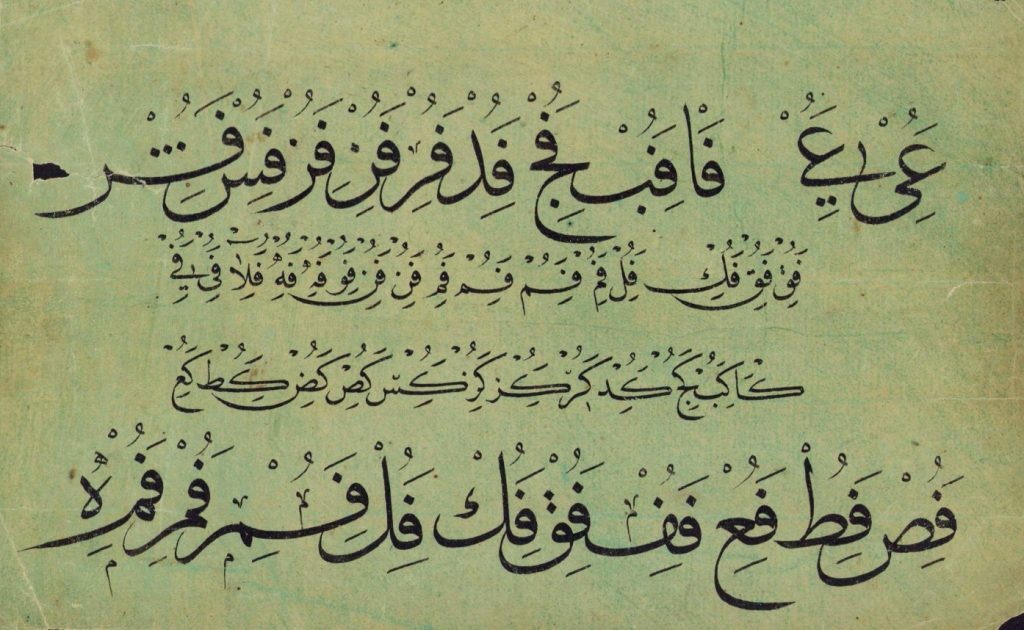 عى عے فا فب فج فد فر فز فر فس
فق فق فك فل فم فم فم فم فن فن فو فه فه فلا فى فے
كا كب كج كد كر كز كز كس كص كض كط كع
فص فط فع فف فق فك فل فم فم فم